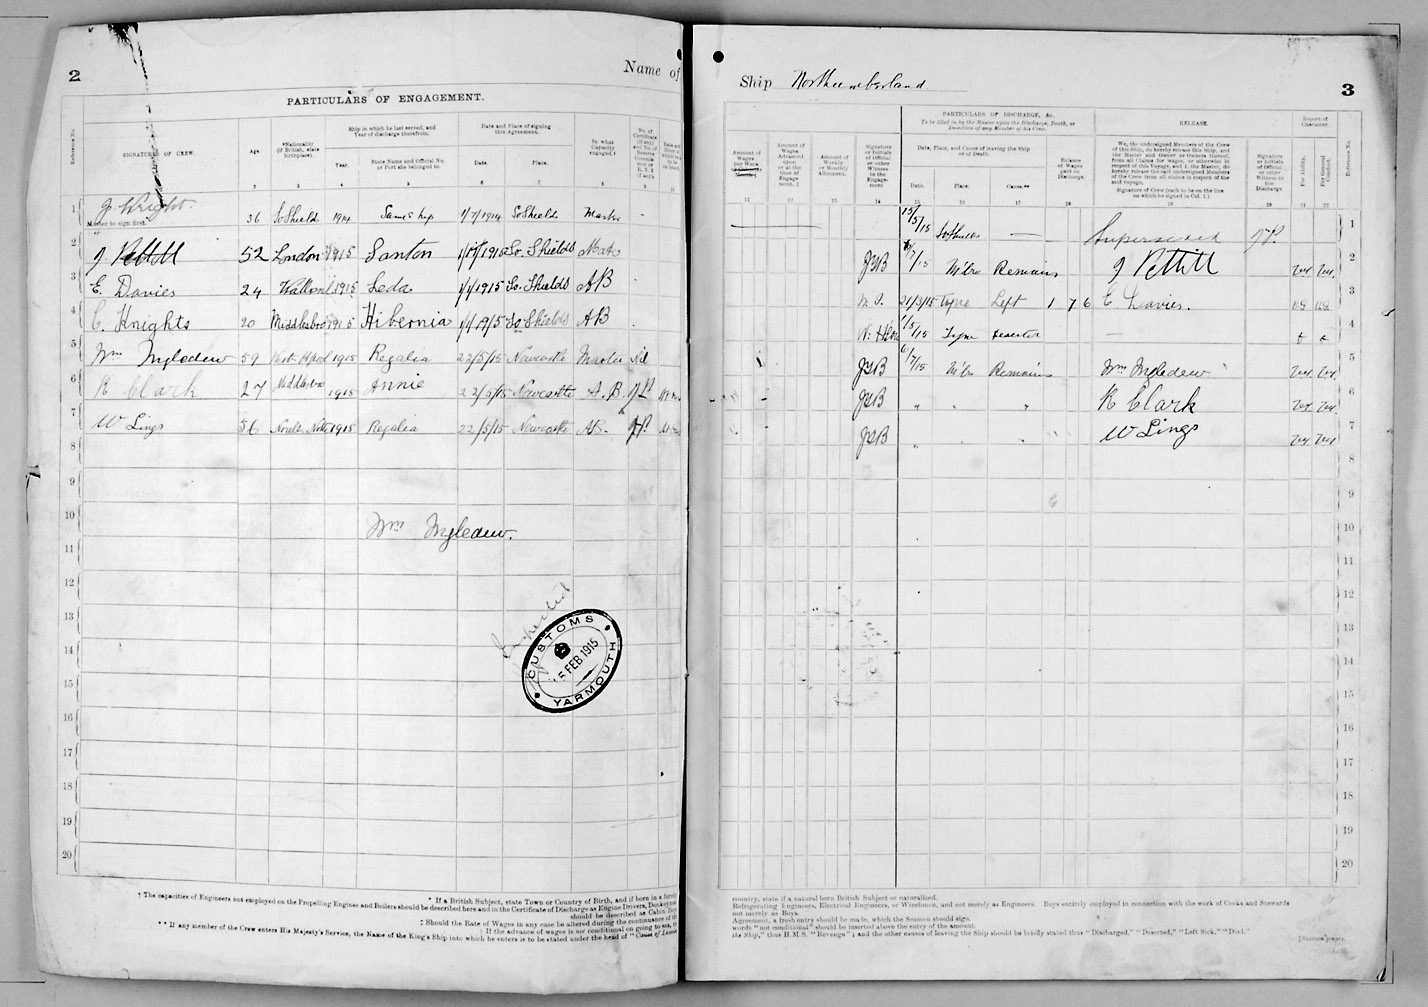 2
Name of
PARTICULARS OF ENGAGEMENT.
Reference No.
SIGNATURES OF CREW.
Age.
*Nationality (If British, state birthplace).
Ship in which he last served, and Year of discharge therefrom.
Year.
State Name and Official No. or Port she belonged to.
Date and Place of signing this Agreement.
Date.
Place.
In what Capacity engaged.†
1 J. Wright 36 So Shields 1914 Same ship 1/7/1914 So Shields Master -
Master to sign first.
2 J Pettitt 52 London 1915 Santon 1915 So. Shields Mate
3 E. Davies 24 1915 Leda 1/1/1915 So. Shields AB
4 C. Knights 20 Middlesbro 1915 Hibernia So Shields AB
5 Wm Ingledew 59 1915 Regalia 22/5/15 Newcastle Master Nil
6 R Clark 27 Middlesbro 1915 Annie 22/5/15 Newcastle A.B.
7 W Lings 56 1915 Regalia 22/5/15 Newcastle AB.
8
9
10
Wm Ingledew.
11
12
13
14
CUSTOMS
5 FEB 1915
YARMOUTH
15
16
17
18
19
20
* If a British Subject, state Town or Country of Birth, and if born in a foreign
† The capacities of Engineers not employed on the Propelling Engines and Boilers should be described here and in the Certificate of Discharge as Engine Drivers, Donkeymen
should be described as Cabin Boys
‡ Should the Rate of Wages in any case be altered during the continuance of the
‖ If the advance of wages is not conditional on going to sea, the
** If any member of the Crew enters His Majesty's Service, the Name of the King's Ship into which he enters is to be stated under the head of "Cause of Leaving
Ship Northumberland
3
PARTICULARS OF DISCHARGE, &c.
To be filled in by the Master upon the Discharge, Death, or Desertion of any Member of his Crew.
RELEASE.
Report of Character.
Amount of Wages per Week
Amount of Wages Advanced upon or at the time of Engagement.
Amount of Weekly or Monthly Allotment.
Signature or Initials of Official or other Witness to the Engagement
Date, Place, and Cause of leaving the Ship or of Death.
Date.
Place.
Cause.**
Balance of Wages paid on Discharge.
We, the undersigned Members of the Crew of this Ship, do hereby release this Ship, and the Master and Owner or Owners thereof, from all Claims for wages, or otherwise in respect of this Voyage, and I, the Master, do hereby release the said undersigned Members of the Crew from all claims in respect of the said voyage.
Signature of Crew (each to be on the line on which he signed in Col. 1.)
Signature or Initials of Official or other Witness to the Discharge.
For Ability.
For General Conduct.
Reference No.
11 12 13 14 15 16 17 18 19 20 21 22
So Shields — Superseded 1
M'bro Remains J Pettitt 2
21/3/15 Tyne Left 1 7 6 E Davies. 3
Tyne Deserter — 4
M'bro Remains Wm Ingledew 5
" " " R Clark 6
" " " W Lings 7
8
9
10
11
12
13
14
15
16
17
18
19
20
country, state if a natural born British Subject or naturalized.
Refrigerating Engineers, Electrical Engineers, or Winchmen, and not merely as Engineers. Boys entirely employed in connection with the work of Cooks and Stewards
not merely as Boys.
Agreement, a fresh entry should be made, which the Seamen should sign.
words "not conditional" should be inserted above the entry of the amount.
the Ship," thus H.M.S. "Revenge"; and the other causes of leaving the Ship should be briefly stated thus "Discharged," "Deserted," "Left Sick," "Died."